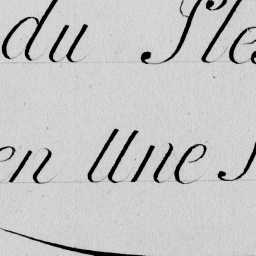 du Ple
en Une